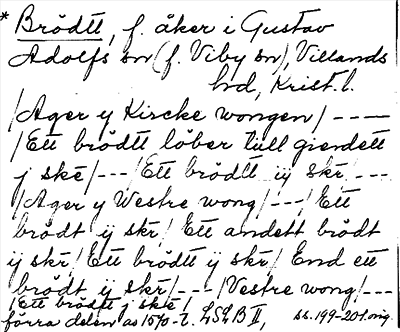 * Brödtt, f. åker i Gustav
Adolfs sn (f. Viby sn), Villands
hd, Krist. l.
/Ager y Kircke wongen/ ----
/Ett brödtt löber tüll gierdett
j skē/---/Ett brödtt iij skr/---
/Ager y Westre wong/---/Ett
brödt ij skr/ Ett andett brödt
ij skr/ Ett brödtt ij skr/ End ett
brödt ij skr/---/Vestre wong/---
/Ett brödtt j skē/
förra delen av 1570-t. LSLB II, ss. 199-201. orig.